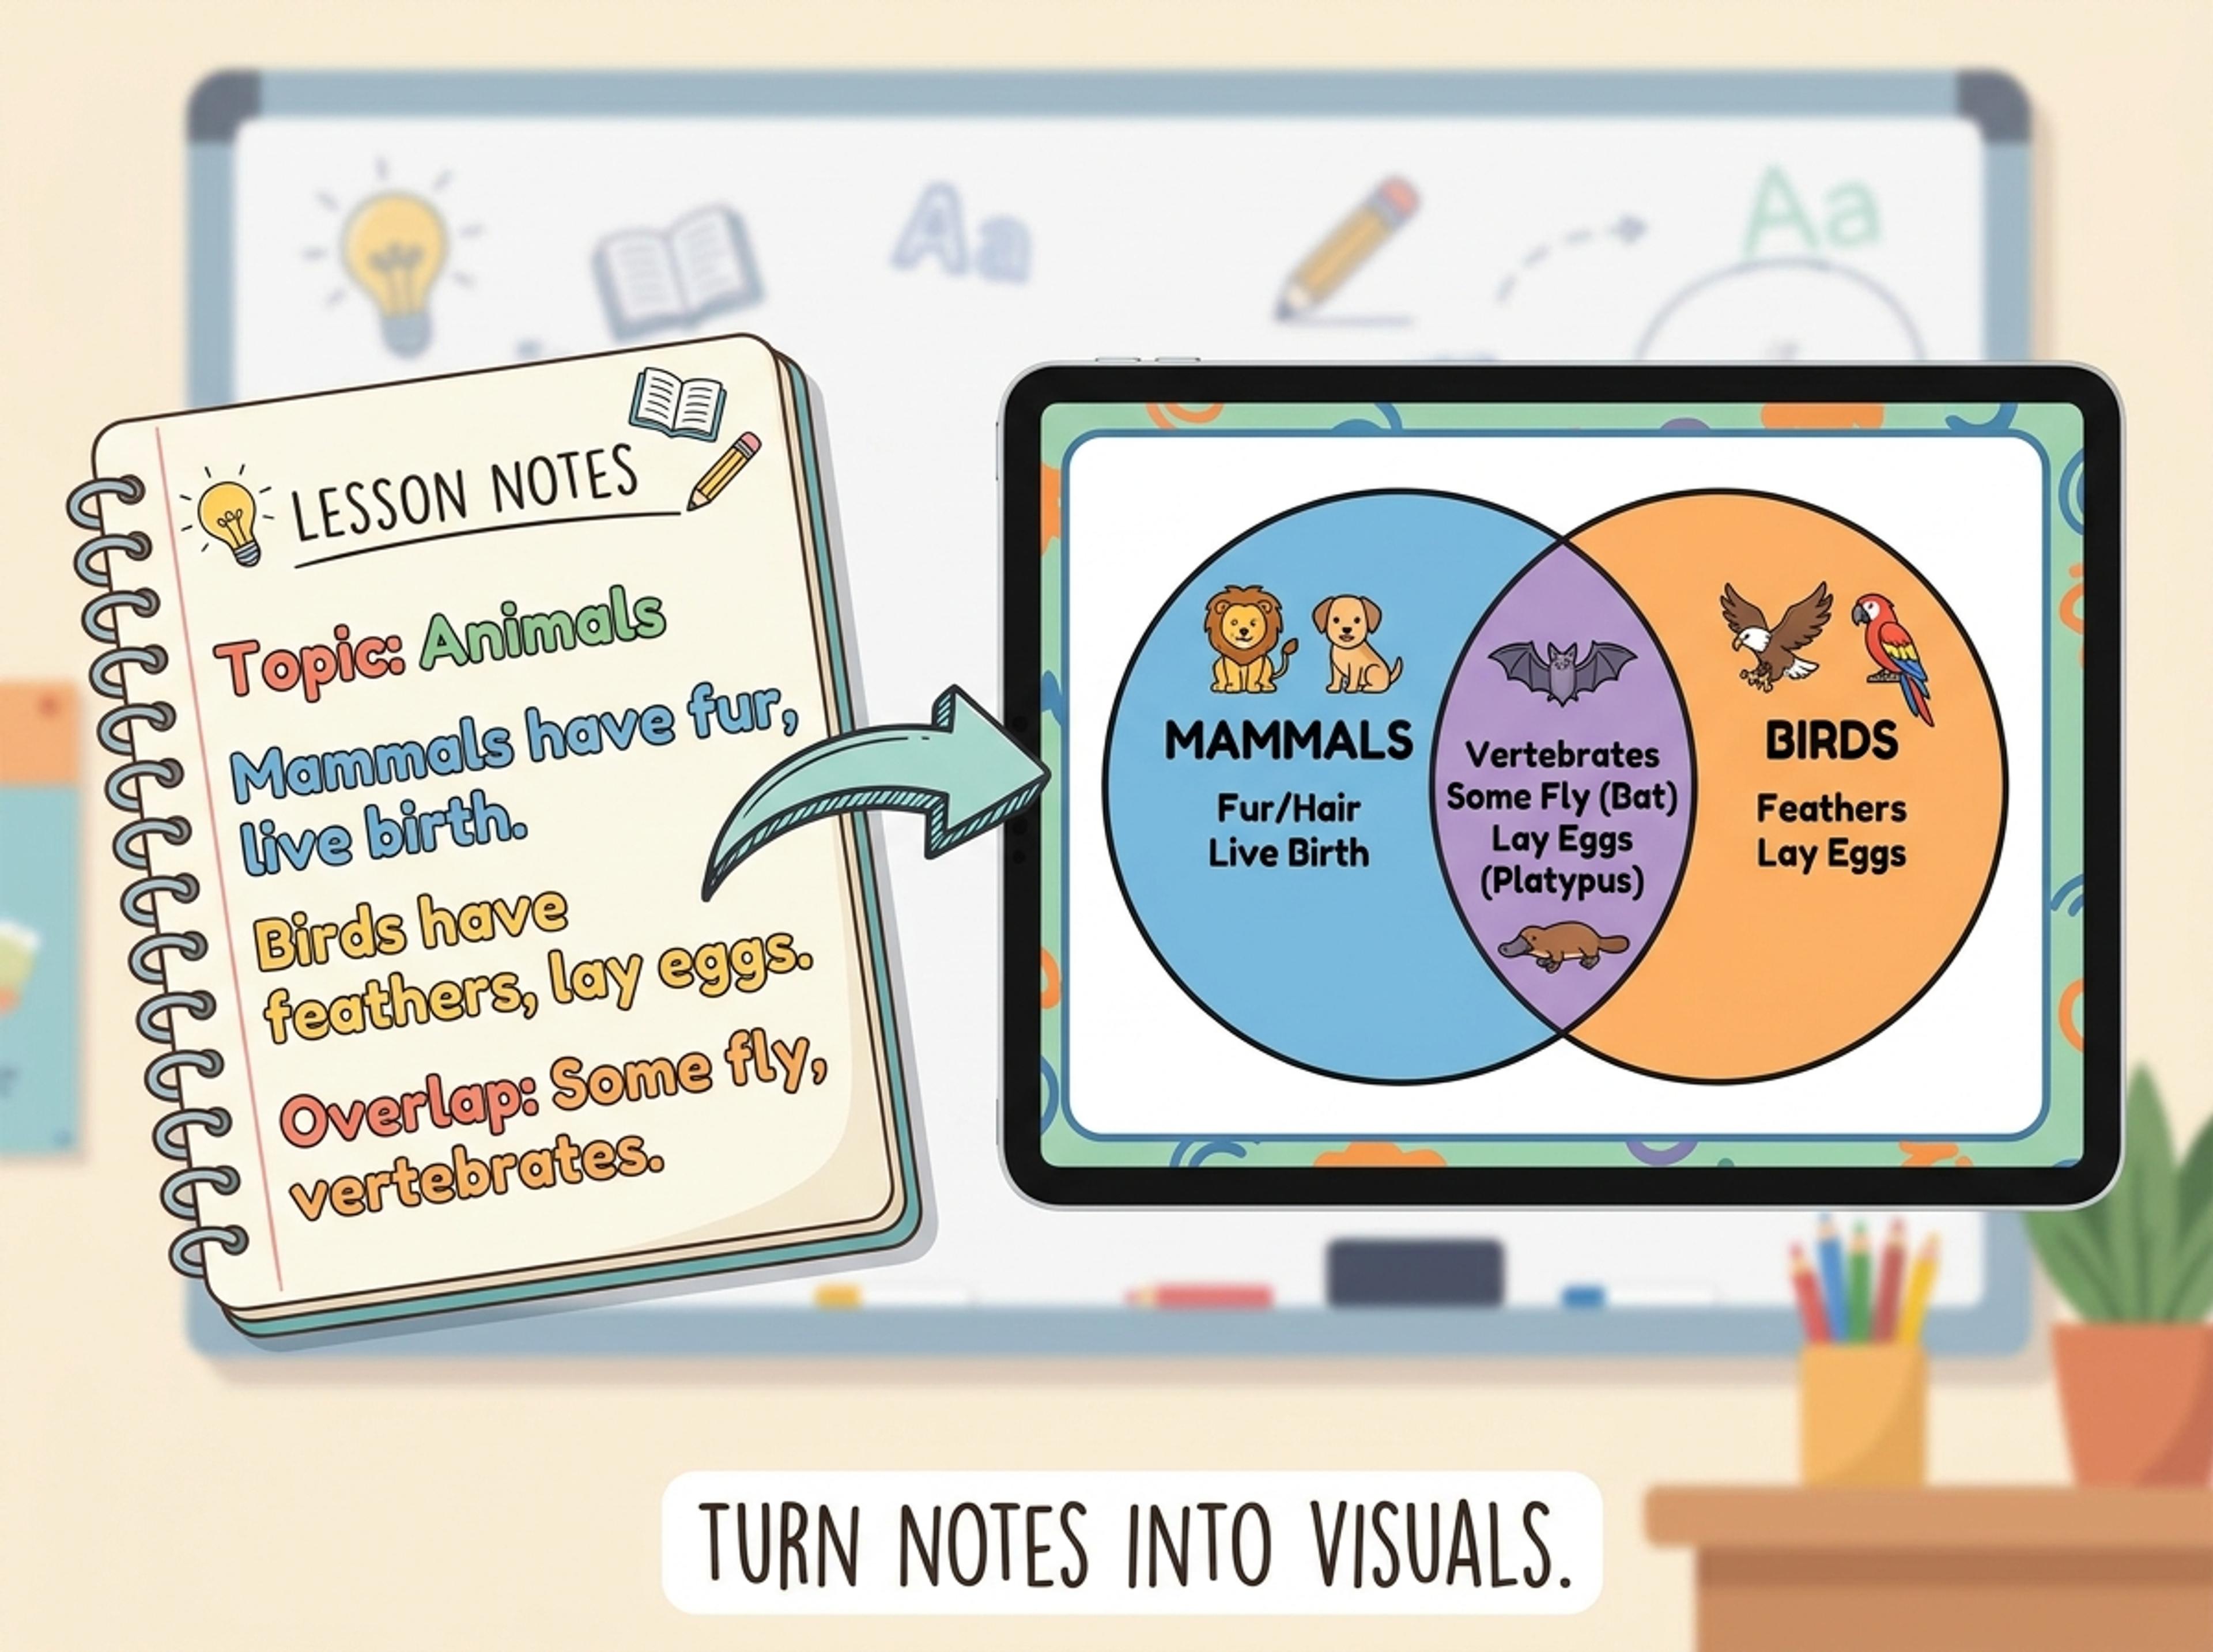 Aa
Aa
LESSON NOTES
Topic: Animals
Mammals have fur,
live birth.
Birds have
feathers, lay eggs.
Overlap: Some fly,
vertebrates.
MAMMALS
Fur/Hair
Live Birth
Vertebrates
Some Fly (Bat)
Lay Eggs
(Platypus)
BIRDS
Feathers
Lay Eggs
TURN NOTES INTO VISUALS.